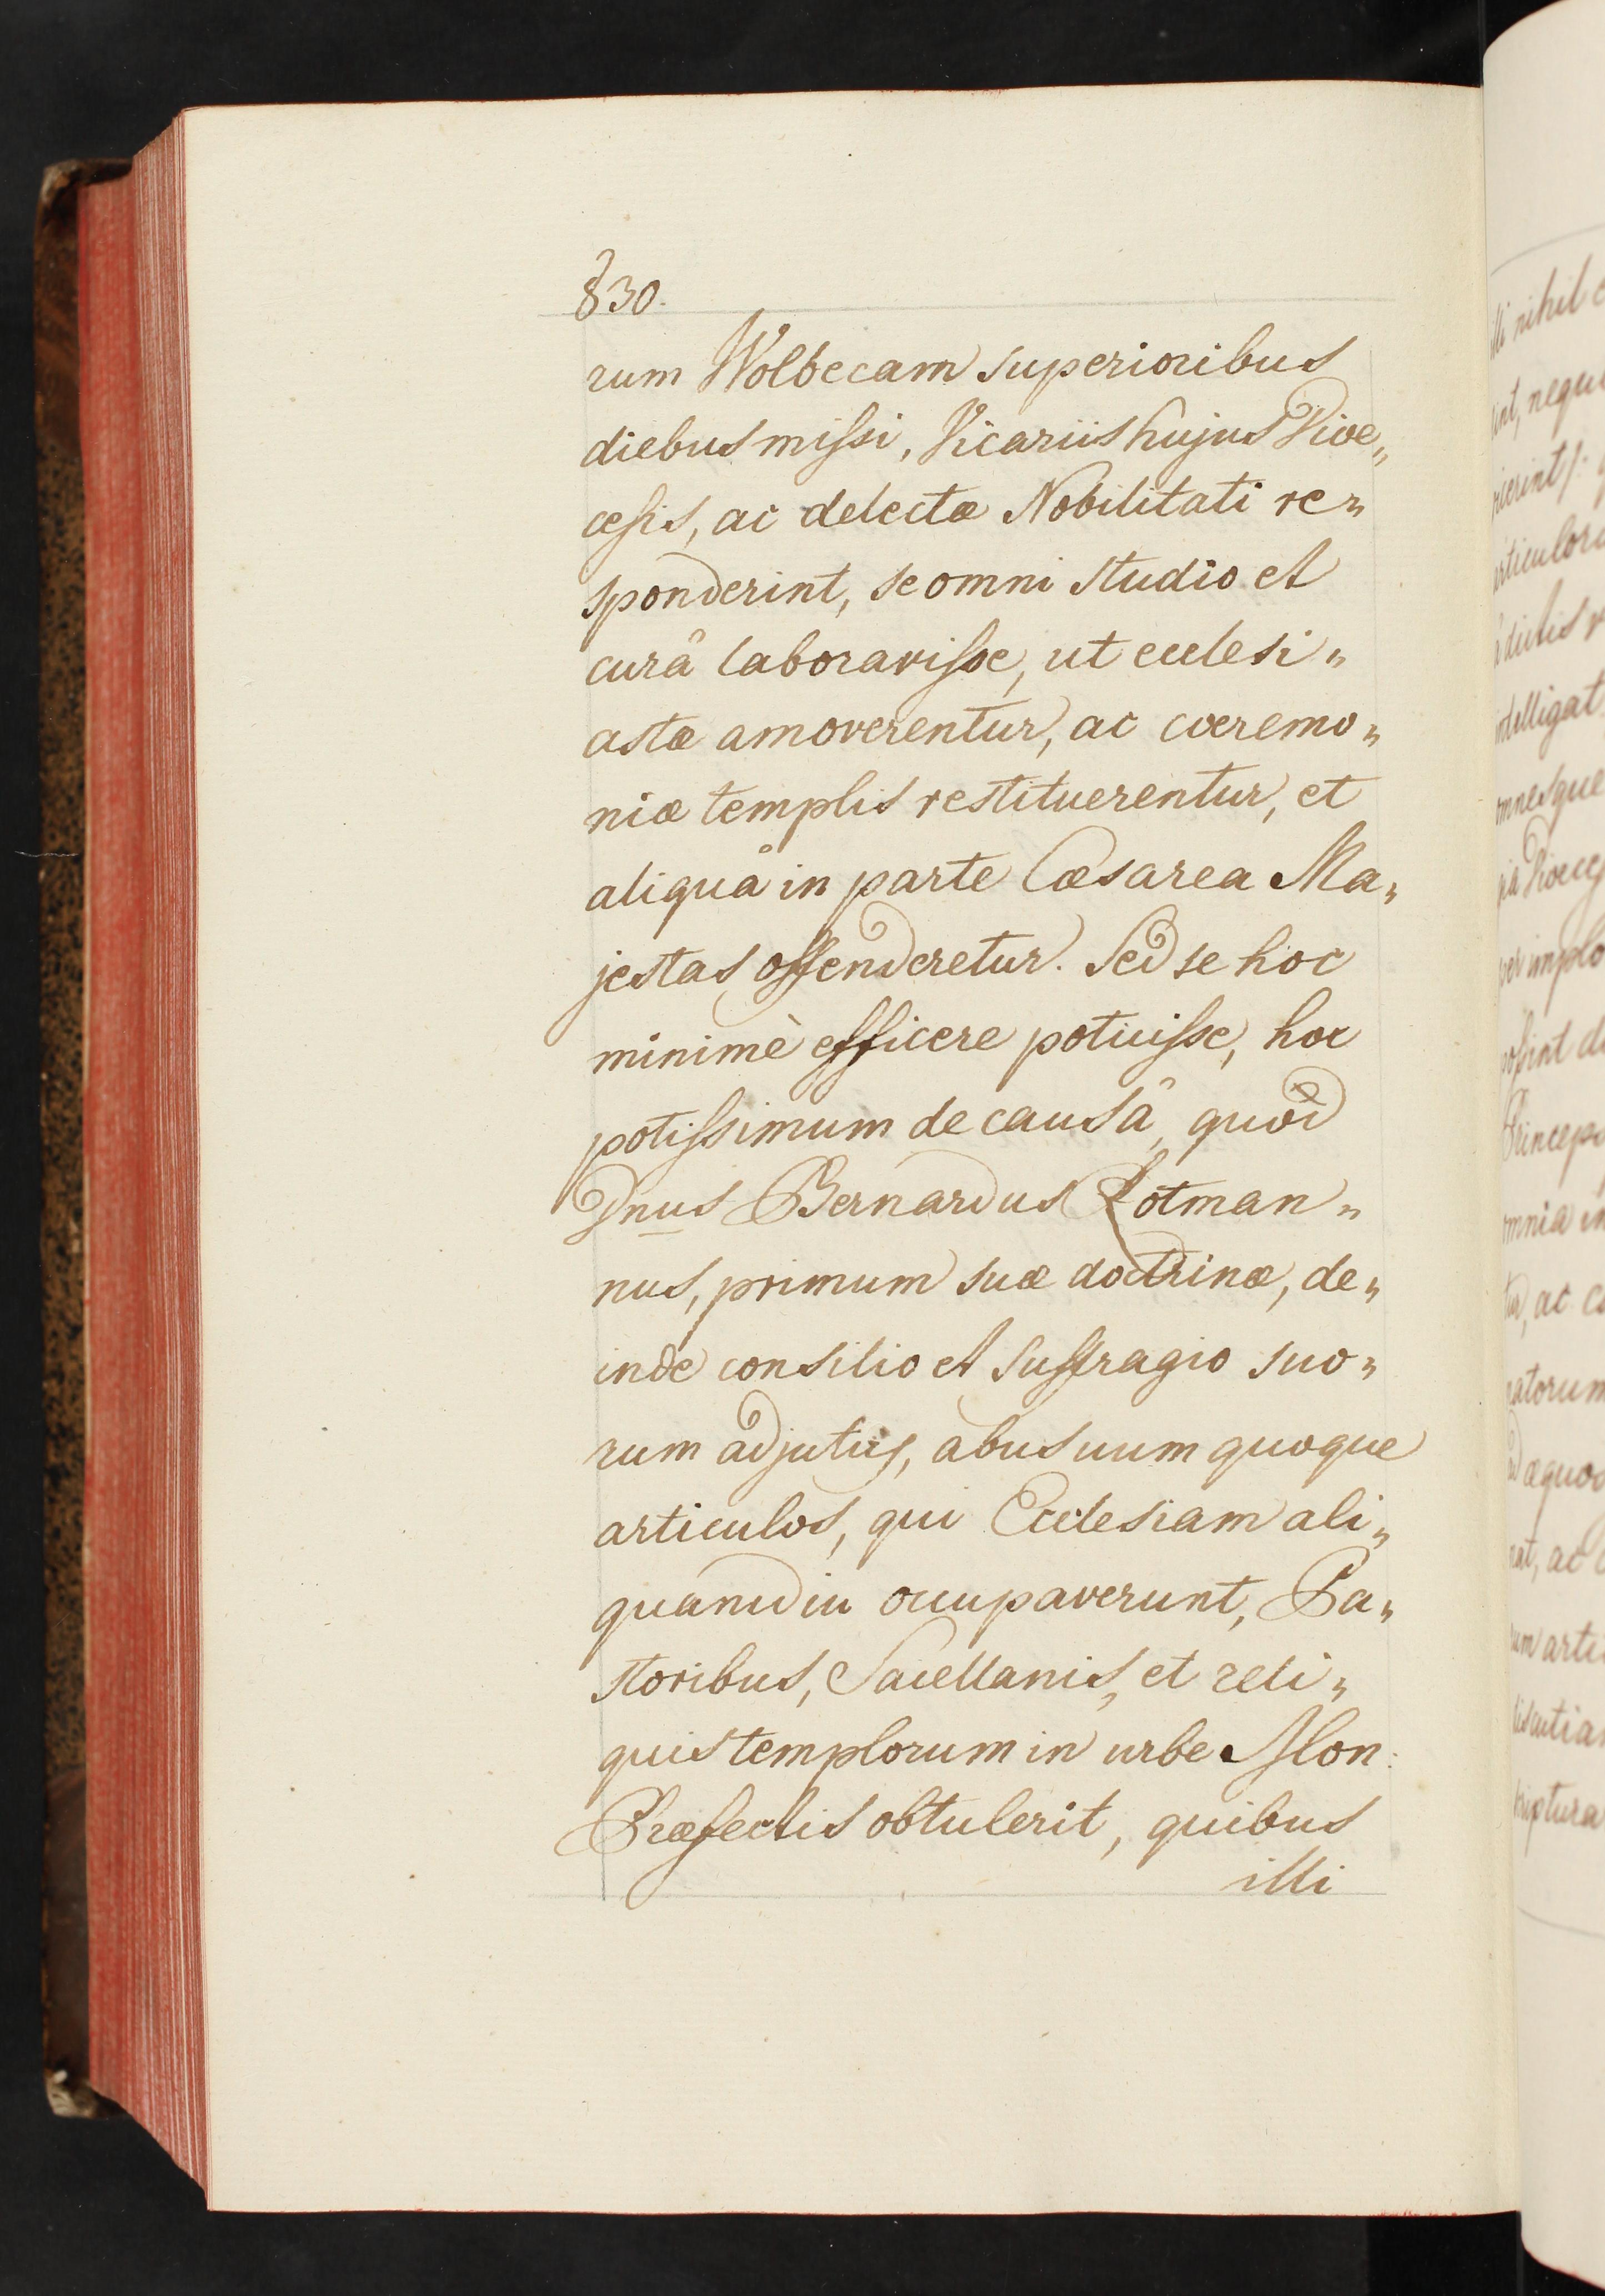 830.
rum Wolbecam superioribus
diebus missi, Vicariis hujus Dioe„
cesis, ac delectæ Nobilitati re„
sponderint, se omni studio et
curâ laboravisse, ut ecclesi„
astæ amoverentur, ac coeremo„
niæ templis restituerentur, et
aliquâ in parte Cæsarea Ma„
jestas offenderetur. Sed se hoc
minimè efficere potuisse, hoc
potissimum de causâ, quòd
Dnus Bernardus Rotman„
nus, primum suæ doctrinæ, de„
inde consilio et suffragio suo„
rum adjutus, abusuum quoque
articulos, qui Ecclesiam ali„
quamdiu occupaverunt, Pa„
storibus, Sacellanis, et reli„
quis templorum in urbe Mon:
Præfectis obtulerit, quibus
illi